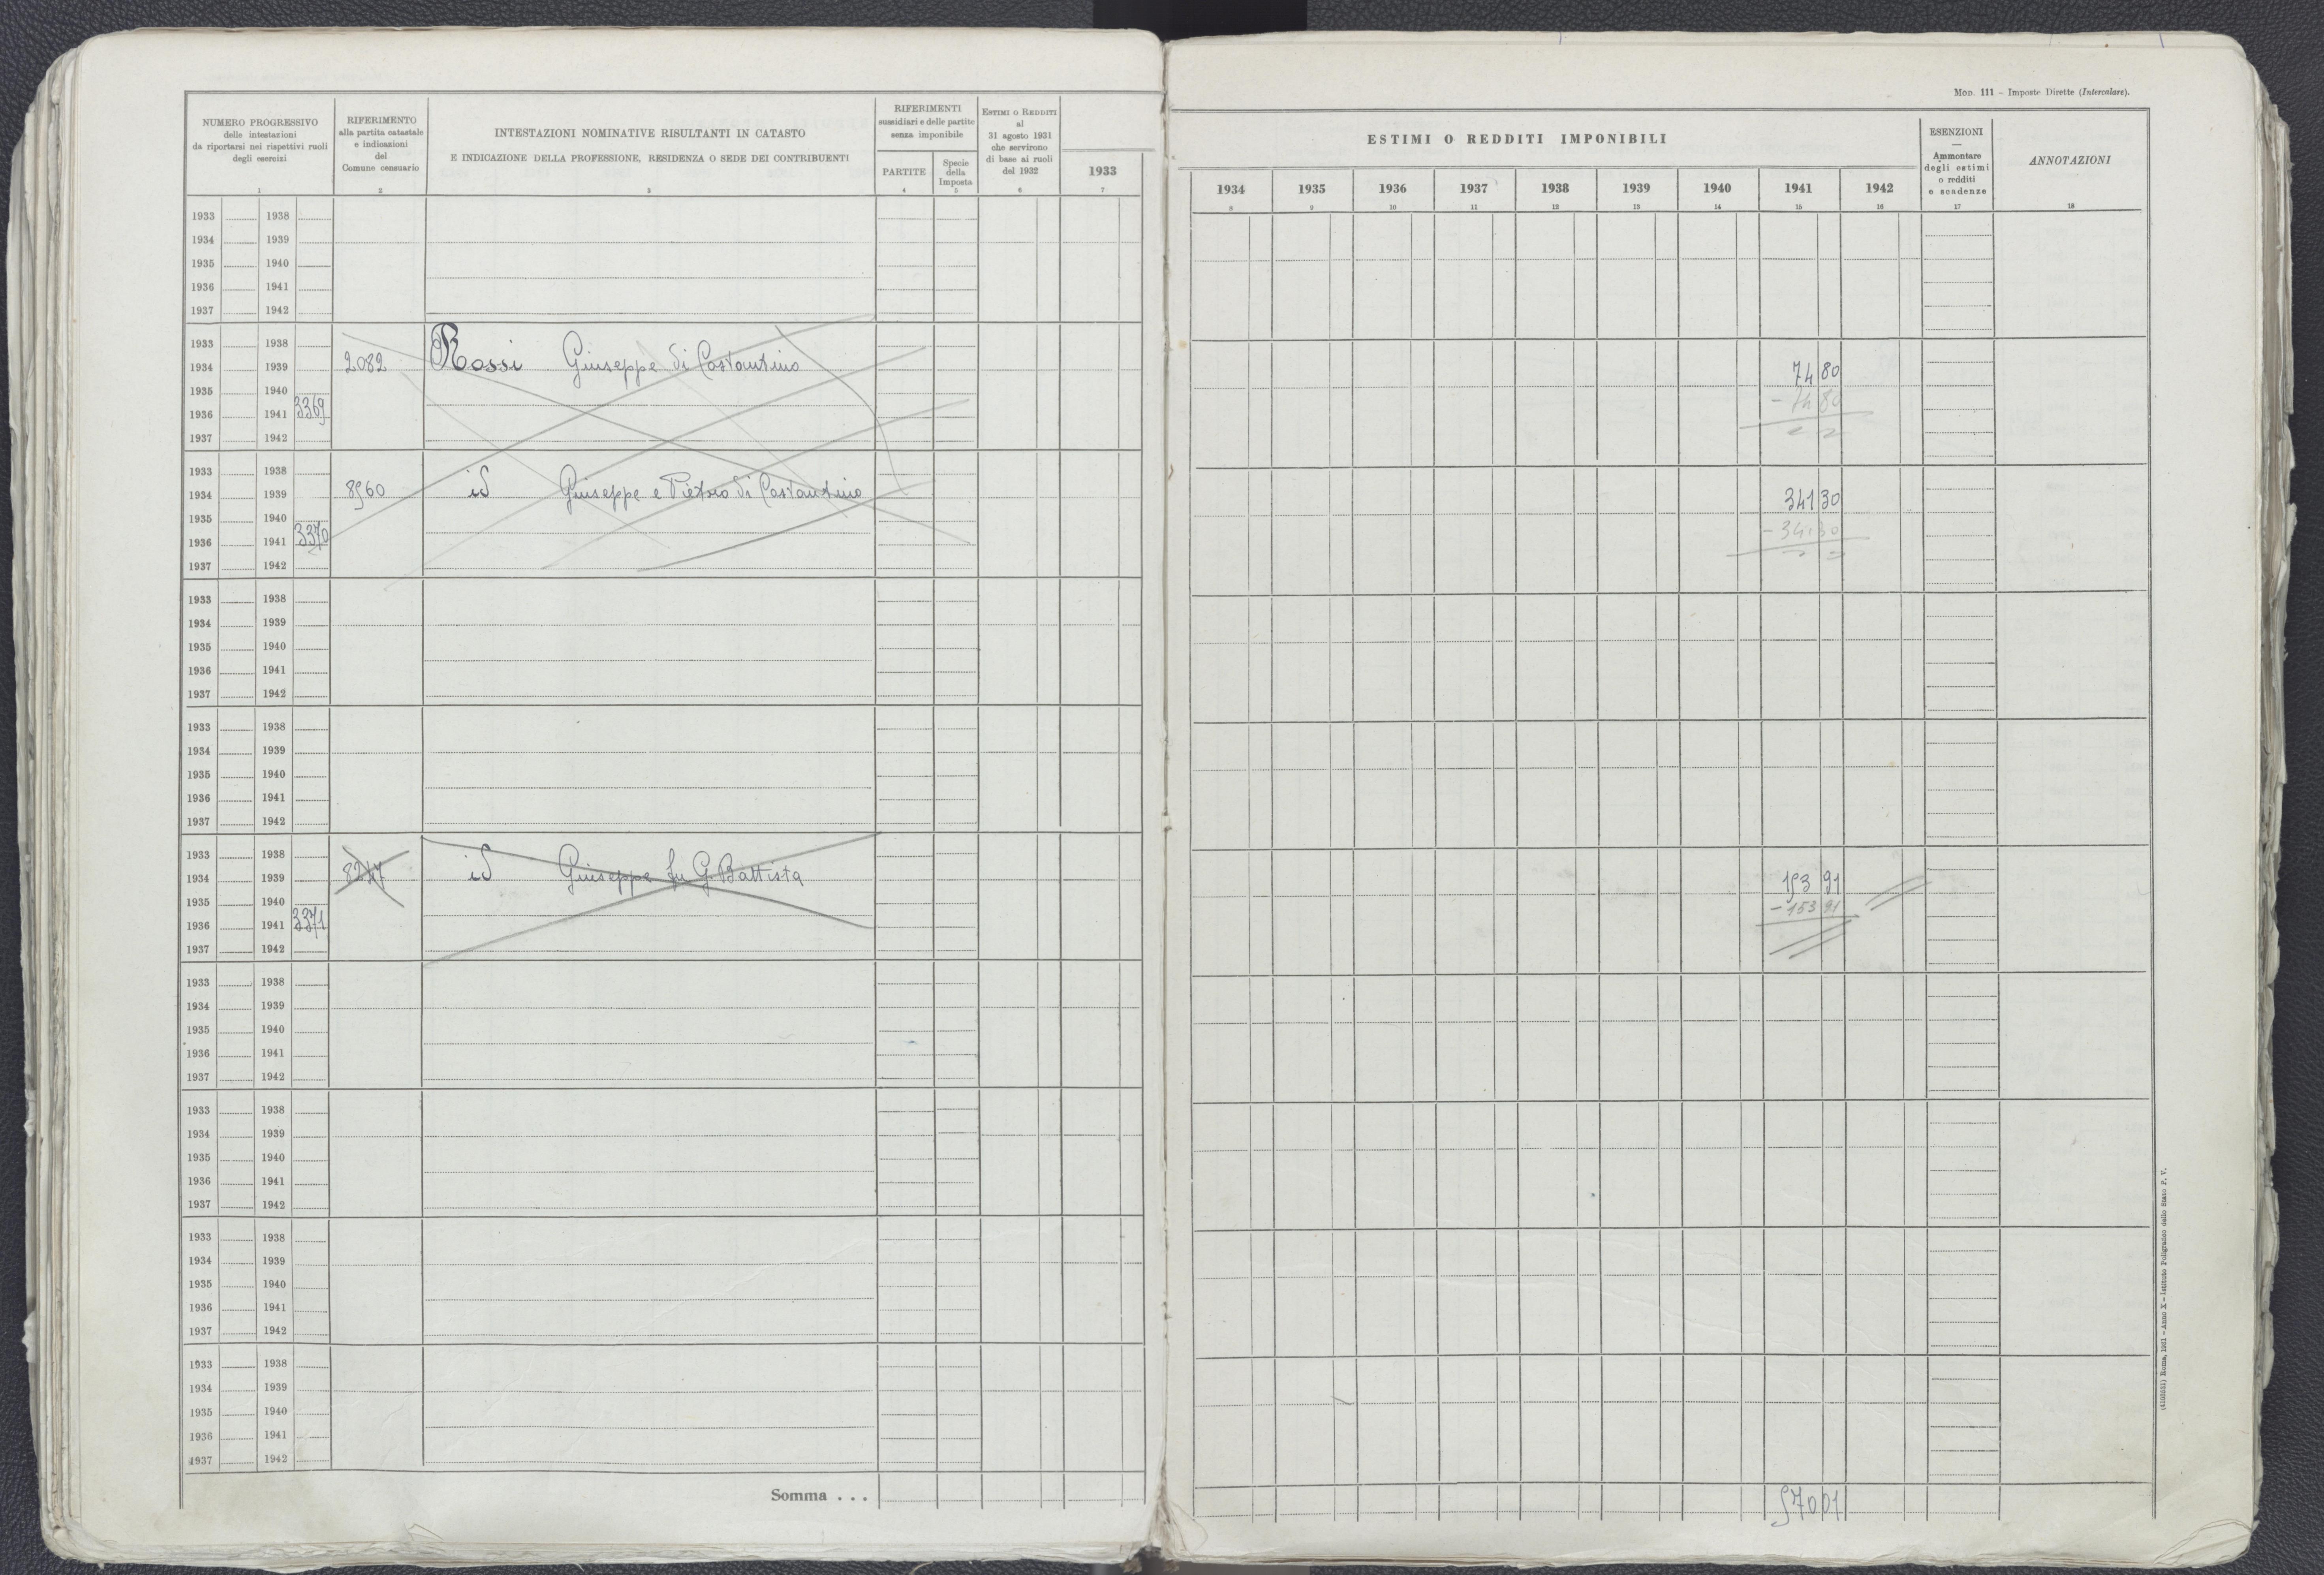 MOD. 111 – Imposte Dirette (Intercalare).
NUMERO PROGRESSIVO
delle intestazioni
da riportarsi nei rispettivi ruoli
degli esercizi
1
RIFERIMENTO
alla partita catastale
e indicazioni
del
Comune censuario
2
INTESTAZIONI NOMINATIVE RISULTANTI IN CATASTO
E INDICAZIONE DELLA PROFESSIONE, RESIDENZA O SEDE DEI CONTRIBUENTI
3
RIFERIMENTI
sussidiari e delle partite
senza imponibile
PARTITE
4
Specie
della
Imposta
5
ESTIMI O REDDITI
al
31 agosto 1931
che servirono
di base ai ruoli
del 1932
6
1933
7
ESTIMI O REDDITI IMPONIBILI
1934 1935 1936 1937 1938 1939 1940 1941 1942
8 9 10 11 12 13 14 15 16
ESENZIONI
—
Ammontare
degli estimi
o redditi
e scadenze
17
ANNOTAZIONI
18
1933 1938
1934 1939
1935 1940
1936 1941
1937 1942
1933 1938
1934 1939 2082 Rossi Giuseppe di Costantino 74 80
1935 1940 – 74 80
1936 1941 3369
1937 1942
1933 1938
1934 1939 8560 id Giuseppe e Pietro di Costantino 341 30
1935 1940 – 341 30
1936 1941 3370
1937 1942
1933 1938
1934 1939
1935 1940
1936 1941
1937 1942
1933 1938
1934 1939
1935 1940
1936 1941
1937 1942
1933 1938
1934 1939 id Giuseppe fu G. Battista 153 91
1935 1940 – 153 91
1936 1941 3371
1937 1942
1933 1938
1934 1939
1935 1940
1936 1941
1937 1942
1933 1938
1934 1939
1935 1940
1936 1941
1937 1942
1933 1938
1934 1939
1935 1940
1936 1941
1937 1942
1933 1938
1934 1939
1935 1940
1936 1941
1937 1942
Somma . . . 570 01
Roma, 1931 – Anno X – Istituto Poligrafico dello Stato P. V.